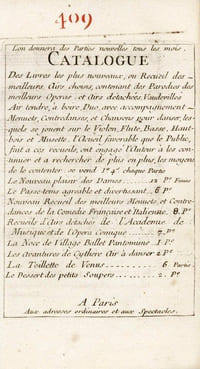 409
L'on donnera des Parties nouvelles tous les mois.
CATALOGUE
Des Livres les plus nouveaux, ou Recueil des
meilleurs Airs choisis, contenant des Parodies des
meilleurs Operas, et Airs détachées Vaudevilles
Air tendre, à boire, Duo, avec accompagnement
Menuets, Contredanses, et Chansons pour danser, les-
quels se jouent sur le Violon, Flute, Basse, Haut-
bois et Musette. L'Acueil favorable que le Public,
fait a ces recueils, ont engagé l'Auteur à les con-
tinuer et a rechercher de plus en plus, les moyens
de le contenter. se vend 1ᵗ 4ˢ chaque Partie
Le Nouveau plaisir des Dames 12 Pᵉ Finies
Le Passe-tems agreable et divertissant 6 Pᵉ
Nouveau Recueil des meilleurs Menuets et Contre-
danses de la Comedie Française et Italienne. 8 Pᵉ
Recueils d'Airs détachés de l'Academie de
Musique et de l'Opera Comique 7 Pᵉ
La Noce de Village Ballet Pantomime 1 Pᵉ
Les Avantures de Cythere Air à danser 2 Pᵉ
La Toillette de Venus 6 Partie
Le Dessert des petits Soupers 2 Pᵉ
A Paris
Aux adresses ordinaires et aux Spectacles.